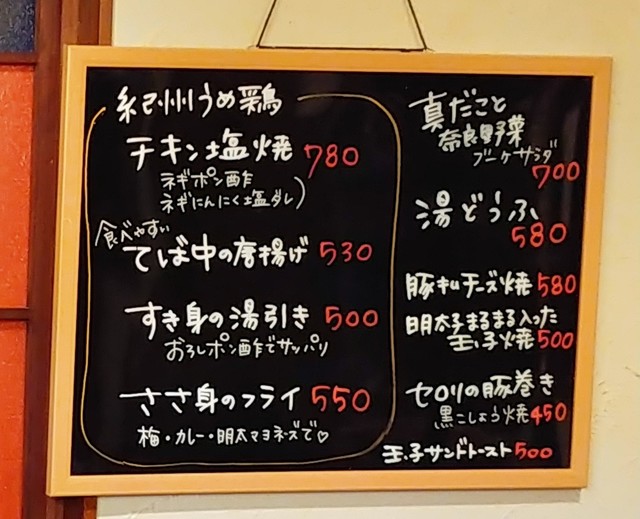 紀州うめ鶏
チキン塩焼 780
ネギポン酢
ネギにんにく塩ダレ)
食べやすい
てば中の唐揚げ 530
すき身の湯引き 500
おろしポン酢でサッパリ
ささ身のフライ 550
梅・カレー・明太マヨネーズで♡
真だこと
奈良野菜
ブーケサラダ
700
湯どうふ
580
豚キムチーズ焼 580
明太子まるまる入った
玉子焼 500
セロリの豚巻き
黒こしょう焼 450
玉子サンドトースト 500